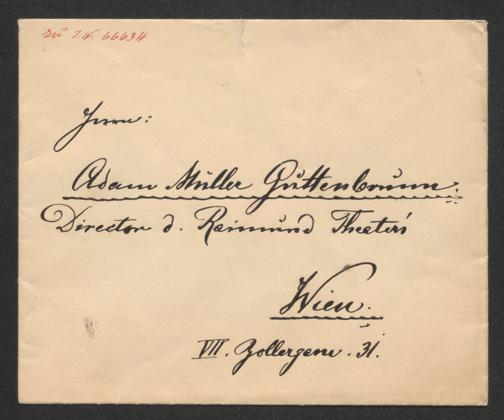 zu I.N. 66634
Herrn:
Adam Müller Guttenbrunn.
Director d. Raimund Theaters
Wien.
VII. Zollergasse. 31.